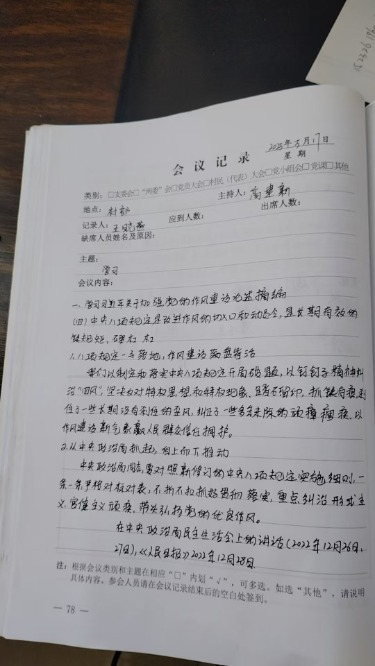 会议记录
2025年5月17日
星期
类别：□支委会□“两委”会□党员大会□村民（代表）大会□党小组会□党课□其他
地点：村部
主持人：高建新
记录人：王晓燕
应到人数：
出席人数：
缺席人员姓名及原因：
主题：
学习
会议内容：
一、学习习近平关于加强党的作风建设论述摘编
(四) 中央八项规定是改进作风的切入口和动员令，是长期有效的
铁规矩、硬杠杠
1.八项规定一子落地，作风建设满盘皆活
我们以制定和落实中央八项规定开局破题，以钉钉子精神纠
治“四风”，坚决反对特权思想和特权现象，
住了一些长期没有刹住的歪风，纠治了一些多年未除的顽瘴痼疾，以
作风建设新气象赢得人民群众信任拥护。
2.从中央政治局抓起，自上而下推动
中央政治局同志要对照新修订的中央八项规定实施细则，一
条一条早对标对表，不折不扣抓好贯彻落实，重点纠治形式主
义、官僚主义顽疾，带头弘扬党的优良作风。
在中央政治局民主生活会上的讲话（2022年12月26日、
27日），《人民日报》2022年12月28日
注：根据会议类别和主题在相应“□”内划“√”，可多选。如选“其他”，请说明
具体内容。参会人员请在会议记录结束后的空白处签到。
— 78 —